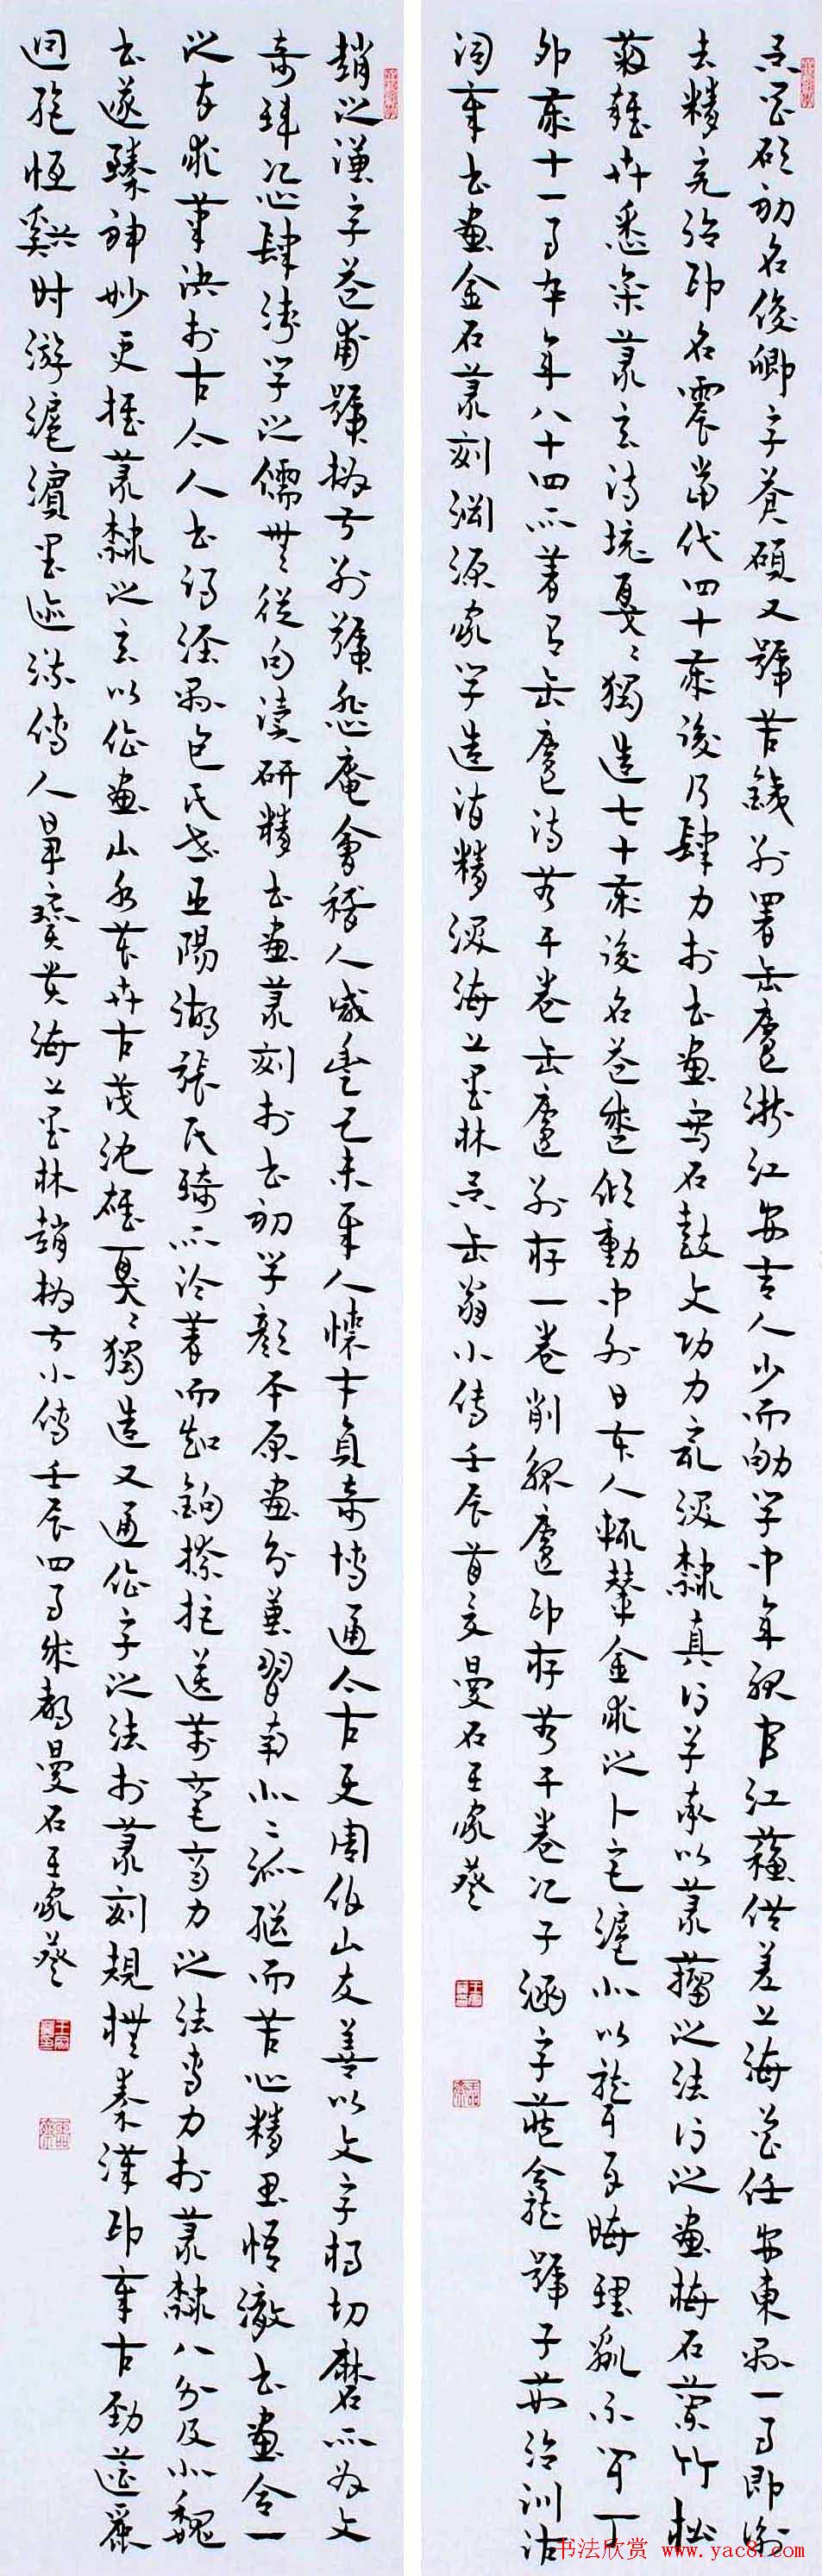 吳昌碩初名俊卿字蒼碩又號苦鐵別署缶廬浙江安吉人少而劬學中年服官江蘇供差上海曾任安東縣一月即謝
去精究治印名震當代四十歲後乃肆力於書畫寫石鼓文功力最深隸真行草參以篆籀之法行之畫梅石蘭竹松
菊雜卉悉參篆意詩境戛戛獨造七十歲後名益盛傾動中外日本人輒輦金求之卜宅滬北以聾自晦理亂不聞丁
卯歲十一月卒年八十四所著有缶廬詩若干卷缶廬別存一卷削觚廬印存若干卷次子涵字藏龕號子茹治訓詁
詞章書畫金石篆刻淵源家學造詣精深海上墨林吳缶翁小傳壬辰首夏曼石王家葵
趙之謙字益甫號撝叔別號悲盦會稽人咸豐己未舉人懷才負奇博通今古更周伯山友善以文字相切磨所為文
奇瑋恣肆濤學之儒無從句讀研精書畫篆刻於書初學顏平原畫分兼習南北二派繼而苦心精思悟澈書畫合一
之旨求筆訣於古今人書得涇縣包氏世臣陽湖張氏琦所論著而知鉤捺抵送萬毫齊力之法專力於篆隸八分及北魏
書遂臻神妙更推篆隸之意以作畫山水花卉古茂沈雄戛戛獨造又通作字之法於篆刻規橅秦漢印章古勁蒼麗
迥絕恆蹊時游滬濱墨迹流傳人爭寶貴海上墨林趙撝叔小傳壬辰四月成都曼石王家葵
书法欣赏 www.yac8.com